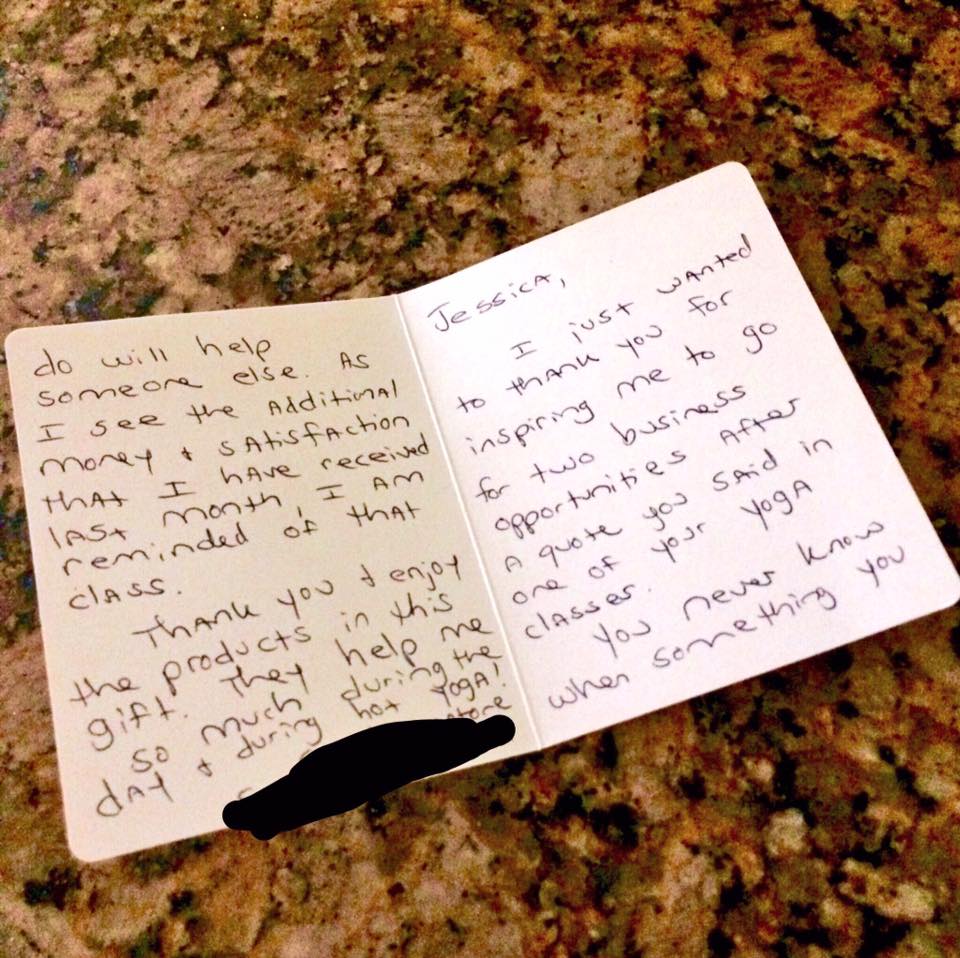 Jessica,
I just wanted
to thank you for
inspiring me to go
for two business
opportunities after
a quote you said in
one of your yoga
classes.
You never know
when something you
do will help
someone else. As
I see the additional
money + satisfaction
that I have received
last month, I am
reminded of that
class.
Thank you + enjoy
the products in this
gift. They help me
so much during the
day + during hot yoga!